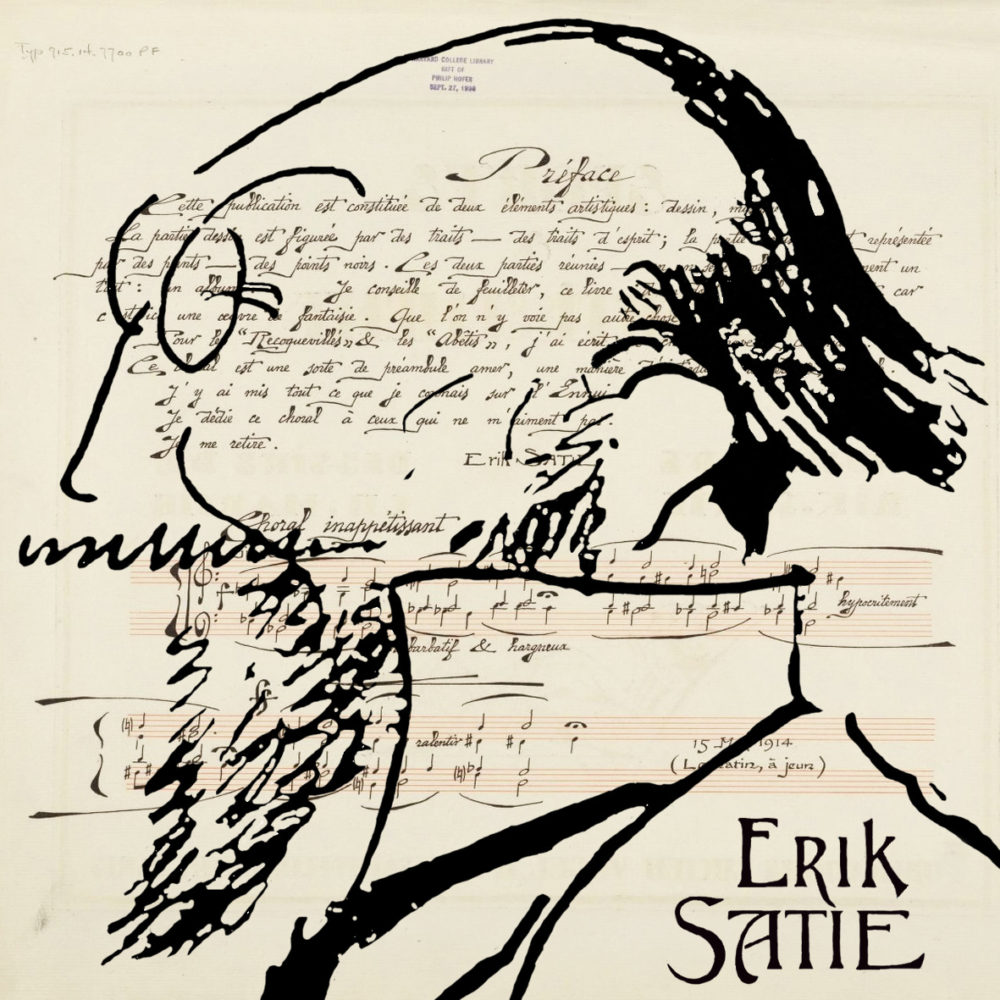 Typ 915.14.7700 PF
HARVARD COLLEGE LIBRARY
GIFT OF
PHILIP HOFER
SEPT. 27, 1938
Préface
Cette publication est constituée de deux éléments artistiques : dessin,
La partie dessin est figurée par des traits — des traits d'esprit ; la partie représentée
par des points — des points noirs. Ces deux parties réunies — en un seul
tout : un album. Je conseille de feuilleter, ce livre car
c une œuvre de fantaisie. Que l'on n'y voie pas autre chose
Pour les "Recoquevillés" & les "Abêtis", j'ai écrit
Ce choral est une sorte de préambule amer, une manière
J'y ai mis tout ce que je connais sur l'Ennui
Je dédie ce choral à ceux qui ne m'aiment pas.
Je me retire.
Erik SATIE
Choral inappétissant
hypocritement
barbatif & hargneux
ralentir
15 Mai 1914
(Le matin, à jeun)
ERIK
SATIE